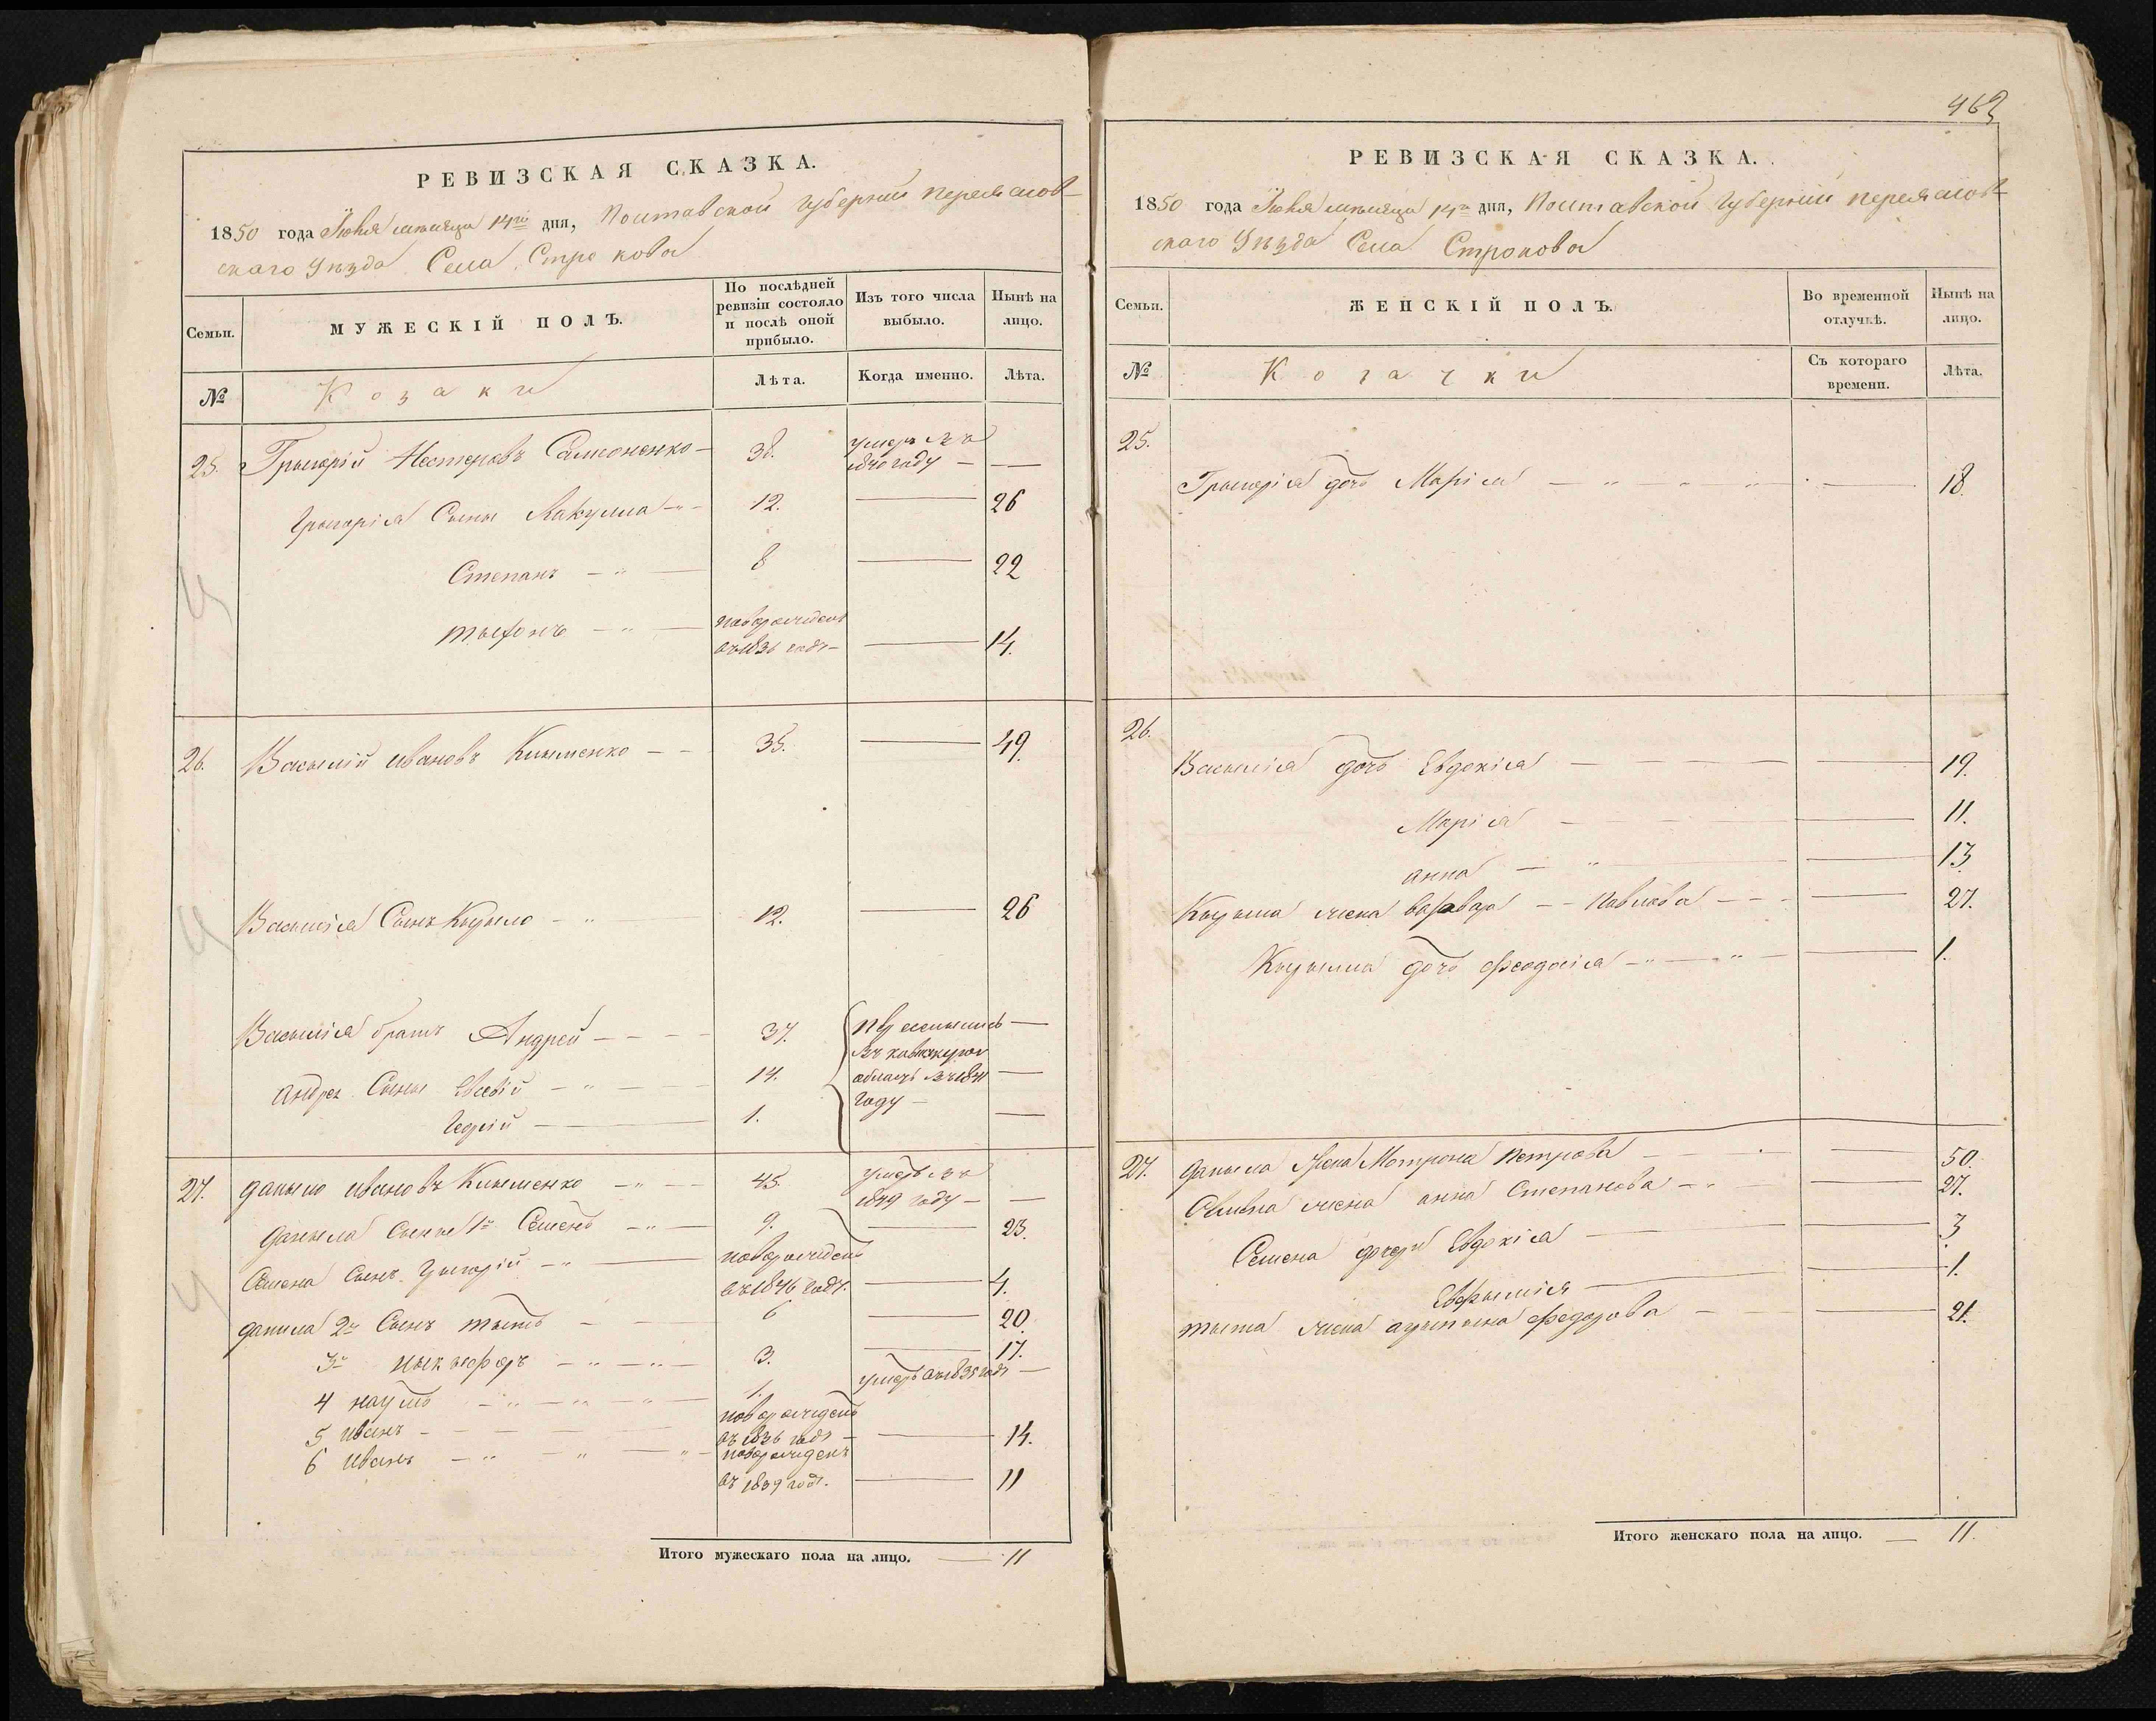 РЕВИЗСКАЯ СКАЗКА.
1850 года Іюня мѣсяца 14го дня, Полтавской Губерніи Переяслов-
скаго Уѣзда Села Строкова
Семьи.
МУЖЕСКІЙ ПОЛЪ.
По послѣдней ревизіи состояло и послѣ оной прибыло.
Изъ того числа выбыло.
Нынѣ на лицо.
№
Козаки
Лѣта.
Когда именно.
Лѣта.
25. Грыгорій Нестеровъ Самоненко 38. умеръ въ
1840 году —
Грыгорія Сыны Яакумма 12. — 26
Степанъ 8 — 22
Тыфонъ новорожденъ
въ 1836 годѣ — 14.
26. Васылій Ивановъ Клыменко 35. — 49.
Васылія Сынъ Кырыло 12. — 26
Васылія братъ Андрей 37. переселились —
въ кавказкую
Андрея Сыны Евсевій 14. область въ 1841 —
году
1. —
27. Даныло Ивановъ Клыменко 45. умеръ въ
1849 году —
Даныла Сыны 1й Семенъ 9. — 23.
Семена Сынъ Грыгорій новорожденъ
въ 1846 годѣ. — 4.
Данила 2й Сынъ Тытъ 6 — 20.
3й Ныкыфоръ 3. — 17.
4 Наумъ 1. умеръ въ 1835 годѣ —
5 Иванъ новорожденъ
въ 1836 годѣ — 14.
6 Иванъ новорожденъ
въ 1839 годѣ. — 11
Итого мужескаго пола на лицо. — 11
462
РЕВИЗСКАЯ СКАЗКА.
1850 года Іюня мѣсяца 14го дня, Полтавской Губерніи Переяслов-
скаго Уѣзда Села Строкова
Семьи.
ЖЕНСКІЙ ПОЛЪ.
Во временной отлучкѣ.
Нынѣ на лицо.
№
Козачки
Съ котораго времени.
Лѣта.
25.
Грыгорія дочь Марія — 18.
26.
Васылія дочь Евдокія — 19.
Марія — 11.
Анна — 13
Кырыла жена Варвара Павлова — 27.
Кырыла дочь Феодосія — 1.
27. Даныла Жена Мотрона Петрова — 50.
Семена жена Анна Степанова — 27.
Семена дочери Евдокія — 3
Евфымія — 1.
Тыта жена Агрыпына Федорова — 21.
Итого женскаго пола на лицо. — 11.